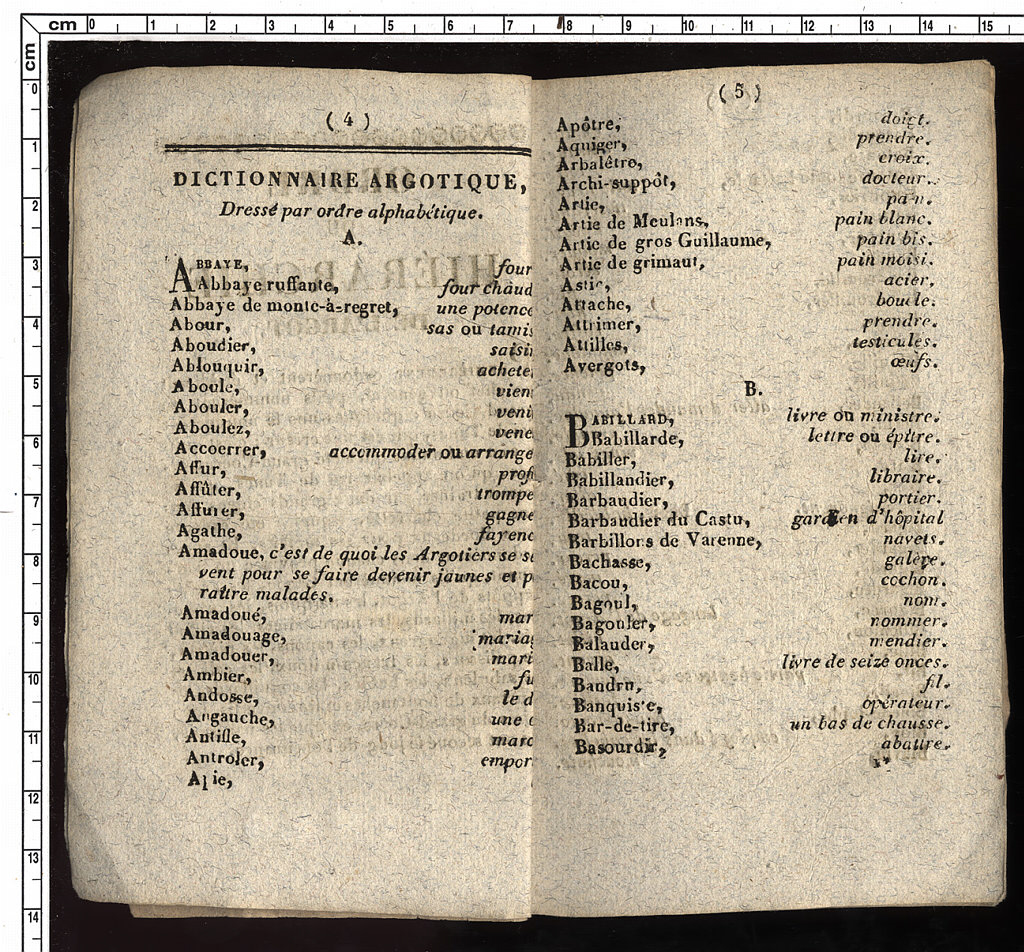 cm 0 1 2 3 4 5 6 7 8 9 10 11 12 13 14 15
cm 0 1 2 3 4 5 6 7 8 9 10 11 12 13 14
( 4 )
DICTIONNAIRE ARGOTIQUE,
Dressé par ordre alphabétique.
A.
ABBAYE, four
Abbaye ruffante, four chaud
Abbaye de monte-à-regret, une potence
Abour, sas ou tamis
Aboudier, saisir
Ablouquir, achete
Aboule, vien
Abouler, veni
Aboulez, vene
Accoerrer, accommoder ou arrange
Affur, prof
Affûter, trompe
Affurer, gagne
Agathe, fayenc
Amadoue, c'est de quoi les Argotiers se s
vent pour se faire devenir jaunes et p
raître malades.
Amadoué, mar
Amadouage, maria
Amadouer, mari
Ambier, fu
Andosse, le d
Angauche, une
Antifle, marc
Antroler, empor
( 5 )
Apôtre, doigt.
Aquiger, prendre.
Arbalêtre, croix.
Archi-suppôt, docteur.
Artie, pain.
Artie de Meulans, pain blanc.
Artie de gros Guillaume, pain bis.
Artie de grimaut, pain moisi.
Astic, acier.
Attache, boucle.
Attrimer, prendre.
Attilles, testicules.
Avergots, œufs.
B.
BABILLARD, livre ou ministre.
Babillarde, lettre ou épitre.
Babiller, lire.
Babillandier, libraire.
Barbaudier, portier.
Barbaudier du Castu, gardien d'hôpital
Barbillons de Varenne, navets.
Bachasse, galère.
Bacou, cochon.
Bagoul, nom.
Bagouler, nommer.
Balauder, mendier.
Balle, livre de seize onces.
Bandru, fil.
Banquiste, opérateur.
Bar-de-tire, un bas de chausse.
Basourdir, abattre.